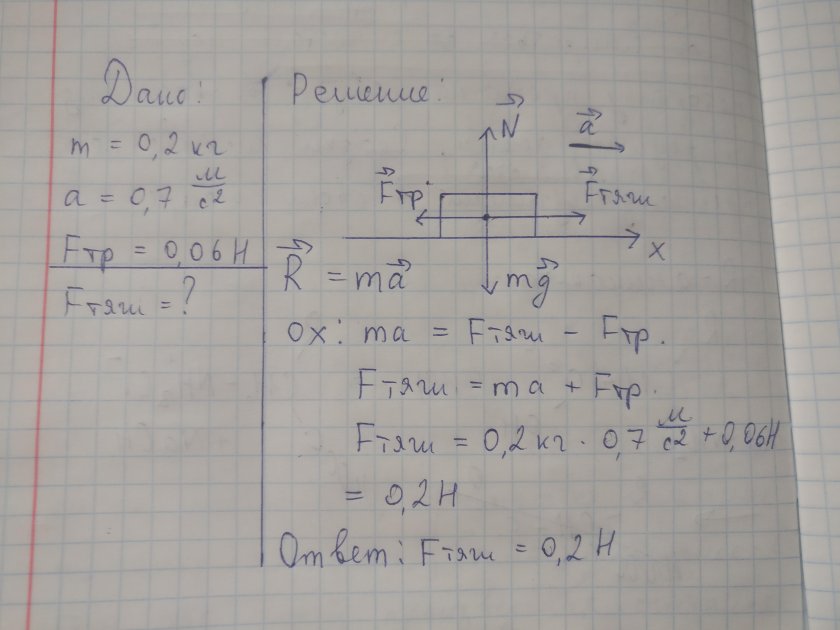 Дано:
m = 0,2 кг
a = 0,7 м/с²
Fтр = 0,06 Н
Fтяги = ?
Решение:
N
a
Fтр.
Fтяги
x
mg
R = ma
ox: ma = Fтяги - Fтр.
Fтяги = ma + Fтр.
Fтяги = 0,2 кг · 0,7 м/с² + 0,06Н
= 0,2 Н
Ответ: Fтяги = 0,2 Н